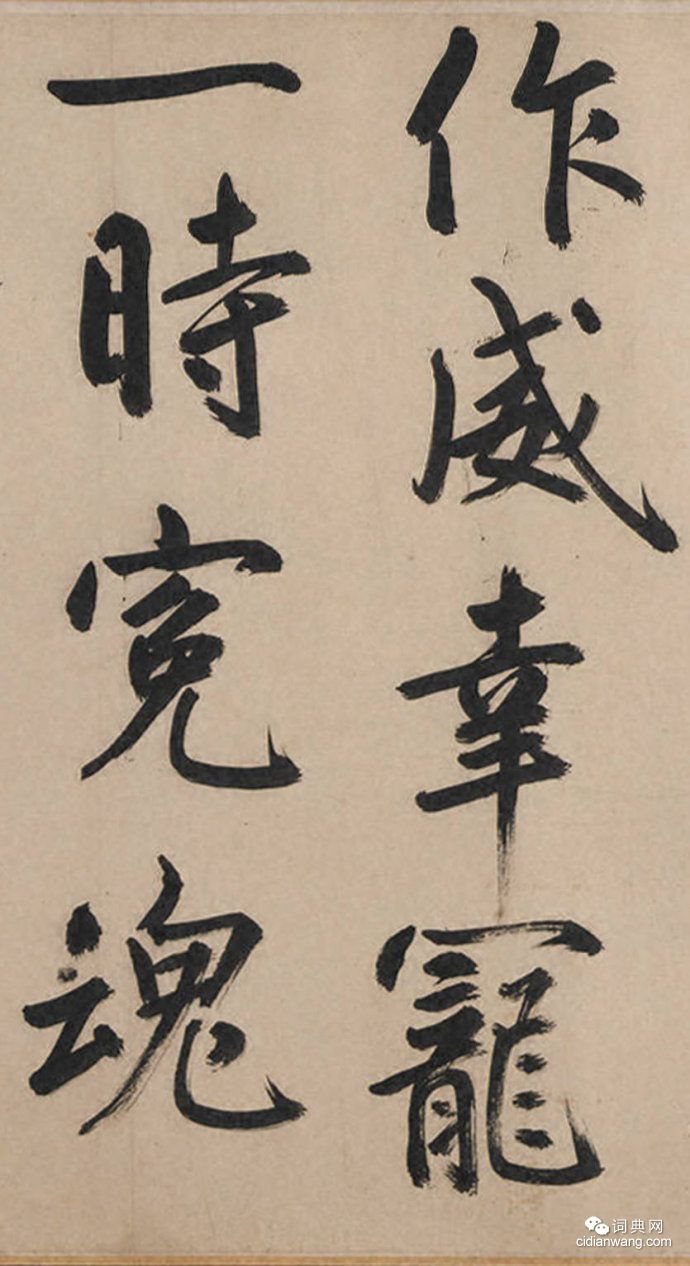 作威幸寵
一時寃魂
词典网
cidianwang.com